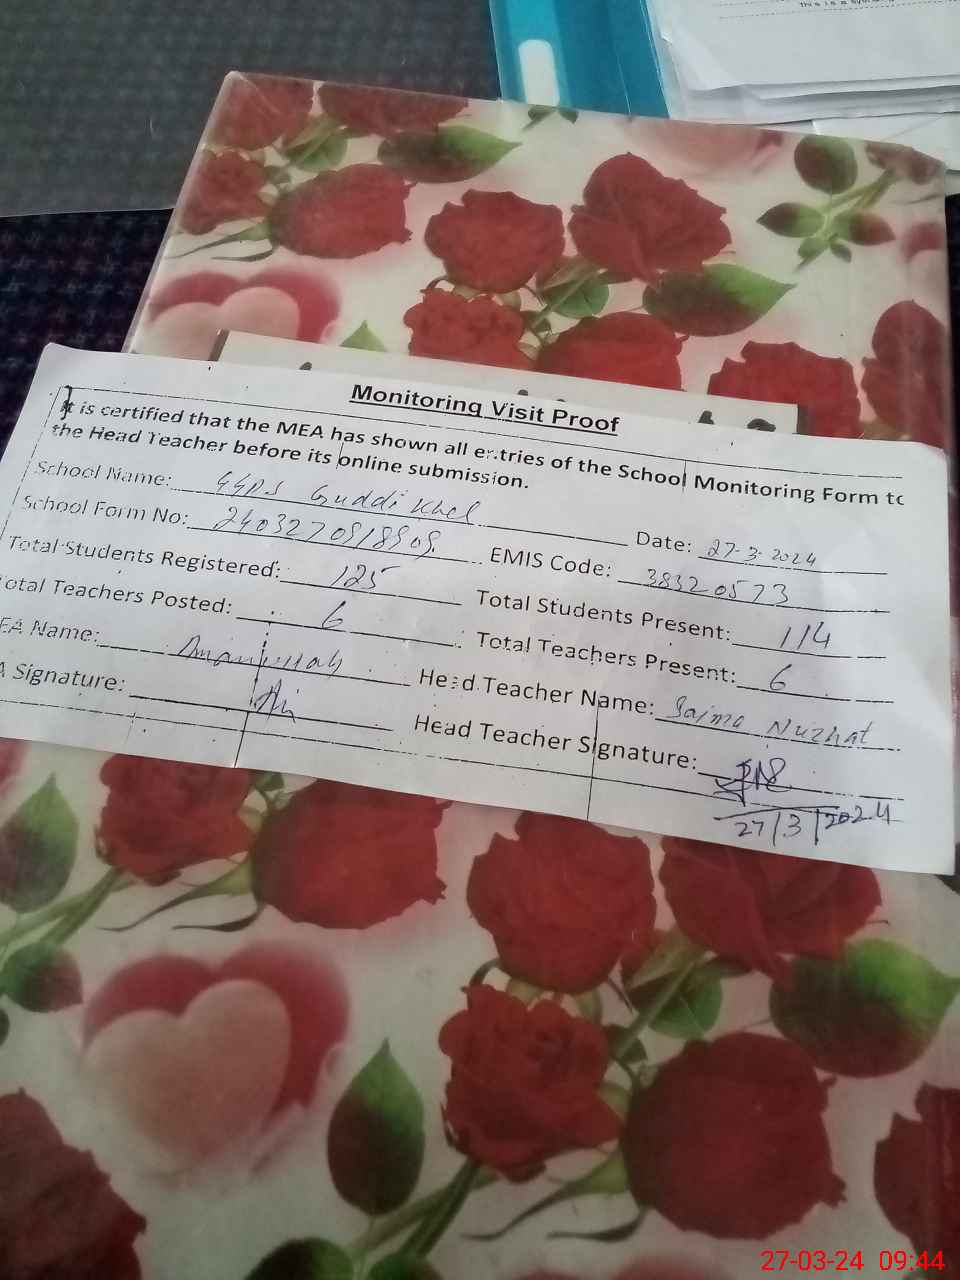 Monitoring Visit Proof
It is certified that the MEA has shown all entries of the School Monitoring Form to
the Head Teacher before its online submission.
School Name: GGPS Guddi Khel Date: 27-3-2024
School Form No: EMIS Code: 38320573
Total Students Registered: 125 Total Students Present: 114
otal Teachers Posted: 6 Total Teachers Present: 6
EA Name: Amanullah Head Teacher Name: Saima Nuzhat
A Signature: Head Teacher Signature:
27/3/2024
27-03-24 09:44